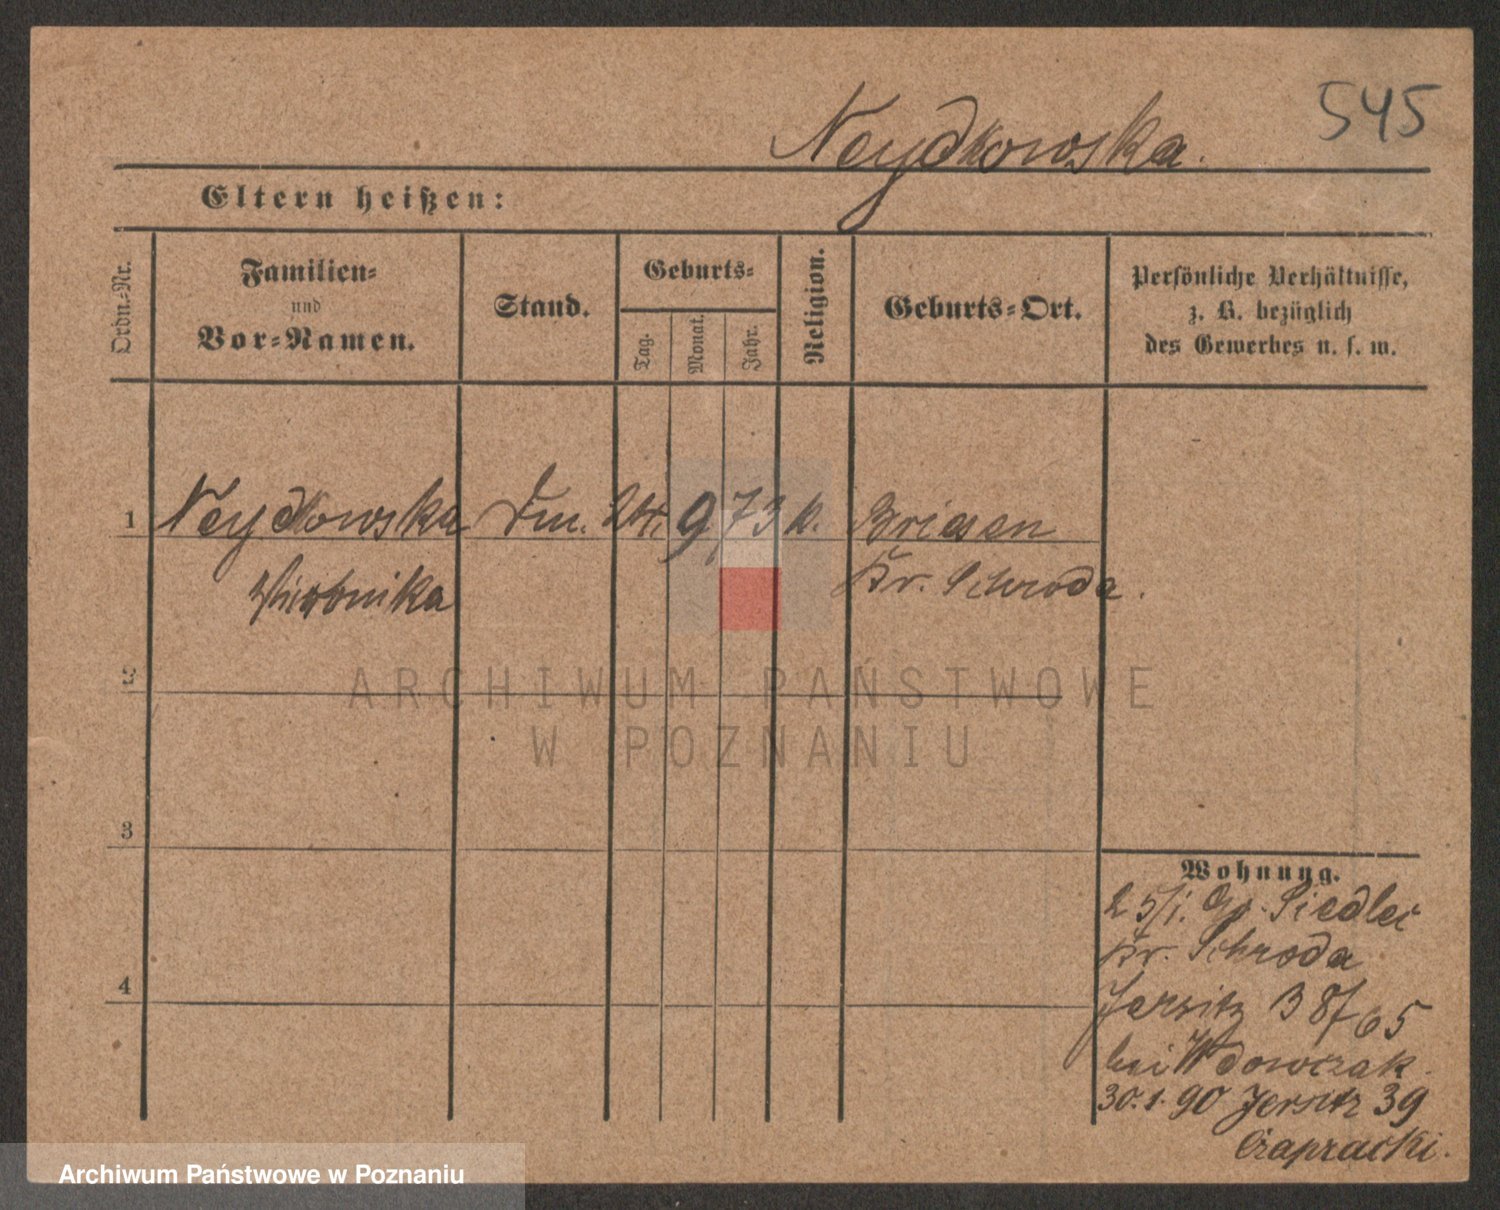 545
Neydkowska.
Eltern heißen:
Ordn.-Nr.
Familien-
und
Vor-Namen.
Stand.
Geburts-
Tag.
Monat.
Jahr.
Religion.
Geburts-Ort.
Persönliche Verhältnisse,
z. B. bezüglich
des Gewerbes u. s. w.
1 Neydkowska 24. 9 73 k. Briesen
Kr. Schroda.
2
ARCHIWUM PAŃSTWOWE
W POZNANIU
3
Wohnung.
25/1. Gr. Siedlec
Kr. Schroda
4
Jersitz B 8/ 65
bei Wdowczak.
30.1.90 Jersitz 39
Czapracki.
Archiwum Państwowe w Poznaniu